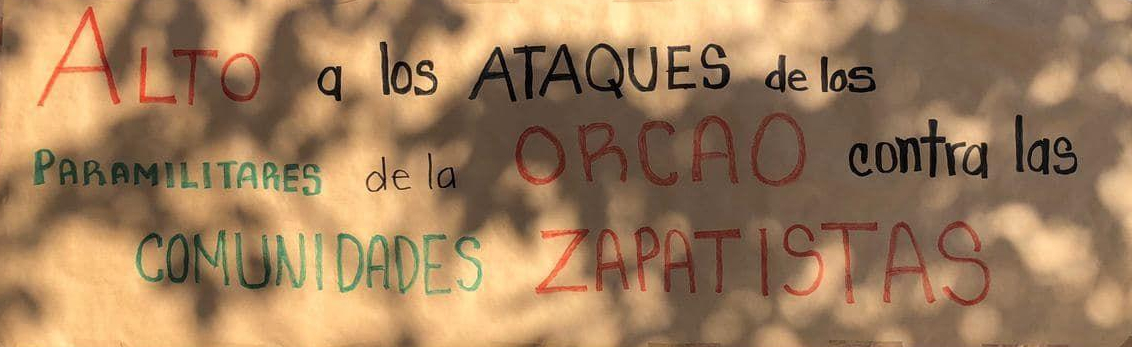 ALTO a los ATAQUES de los
PARAMILITARES de la ORCAO contra las
COMUNIDADES ZAPATISTAS